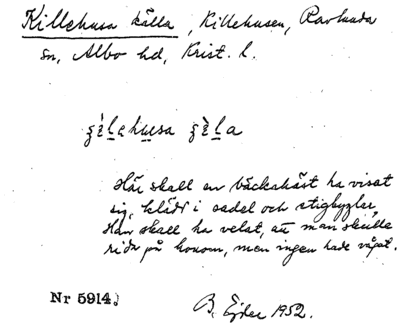 Killehusa källa, Killehusen, Ravlunda
sn, Albo hd, Krist. l.
Här skall en bäckahäst ha visat
sig, klädd i sadel och stigbyglar.
Han skall ha velat, att man skulle
rida på honom, men ingen hade vågat.
Nr 5914.
B. Ejder 1952.